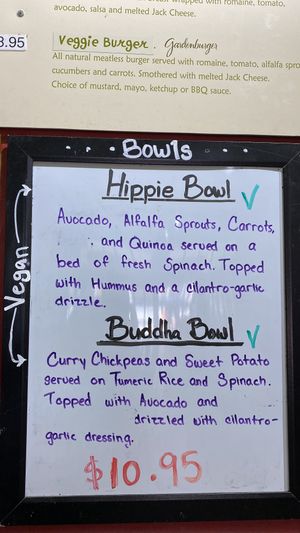 wrapped with romaine, tomato,
avocado, salsa and melted Jack Cheese.
3.95
Veggie Burger. Gardenburger
All natural meatless burger served with romaine, tomato, alfalfa spro
cucumbers and carrots. Smothered with melted Jack Cheese.
Choice of mustard, mayo, ketchup or BBQ sauce.
Bowls
Vegan
Hippie Bowl ✓
Avocado, Alfalfa Sprouts, Carrots,
, and Quinoa served on a
bed of fresh Spinach. Topped
with Hummus and a cilantro-garlic
drizzle.
Buddha Bowl ✓
Curry Chickpeas and Sweet Potato
served on Tumeric Rice and Spinach.
Topped with Avocado and
drizzled with cilantro-
garlic dressing.
$10.95